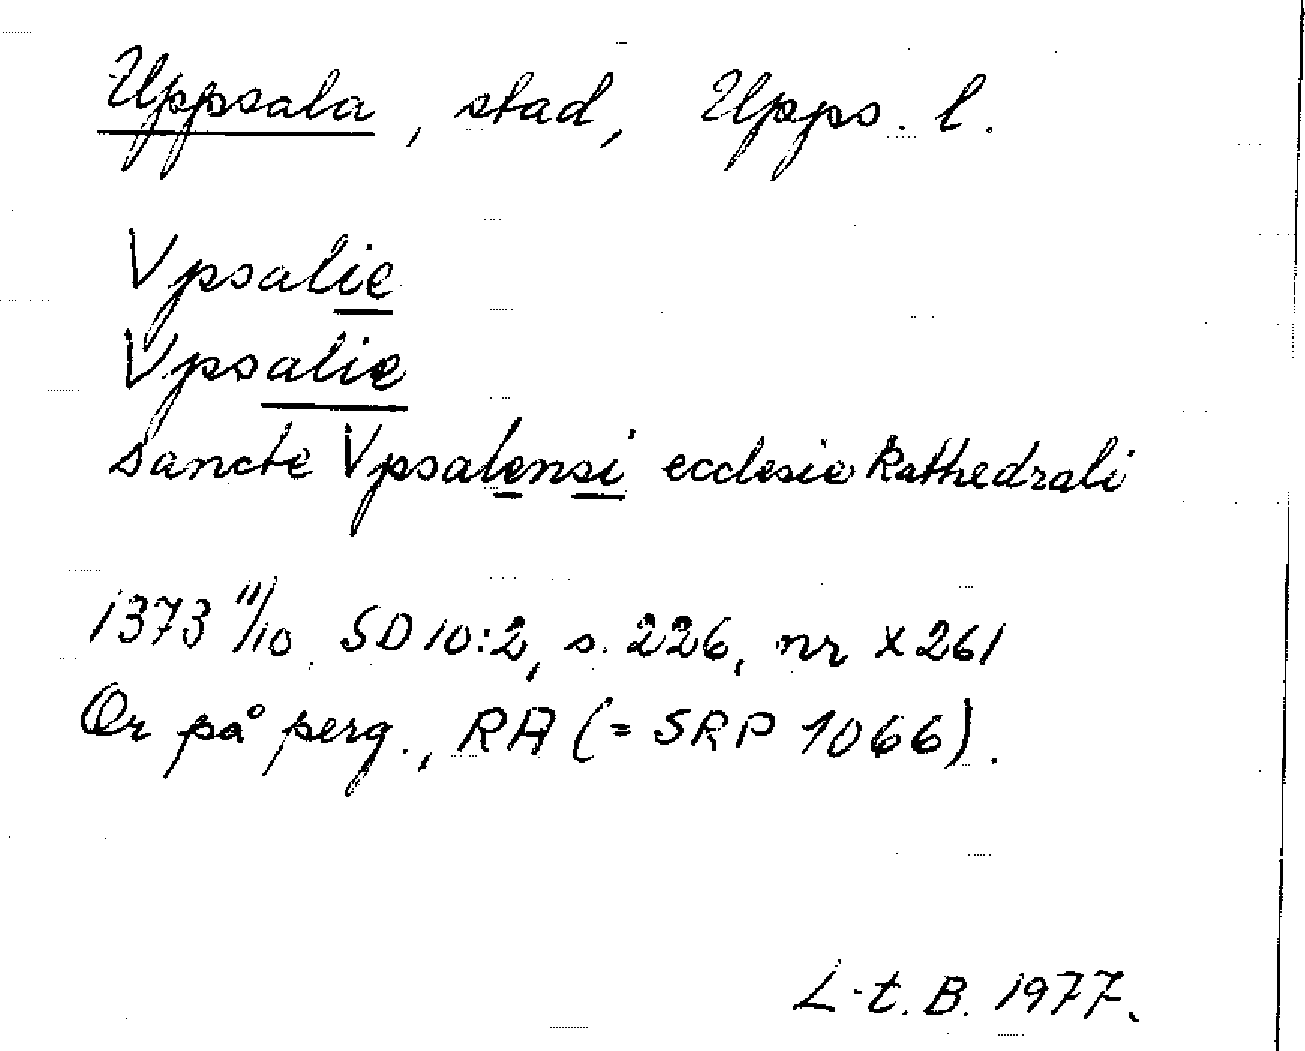 Uppsala, stad, Upps. l.
Vpsalie
Vpsalie
sancte Vpsalensi ecclesie kathedrali
1373 11/10. SD 10:2, s. 226, nr X 261
Or på perg., RA (= SRP 1066).
L-t. B. 1977.